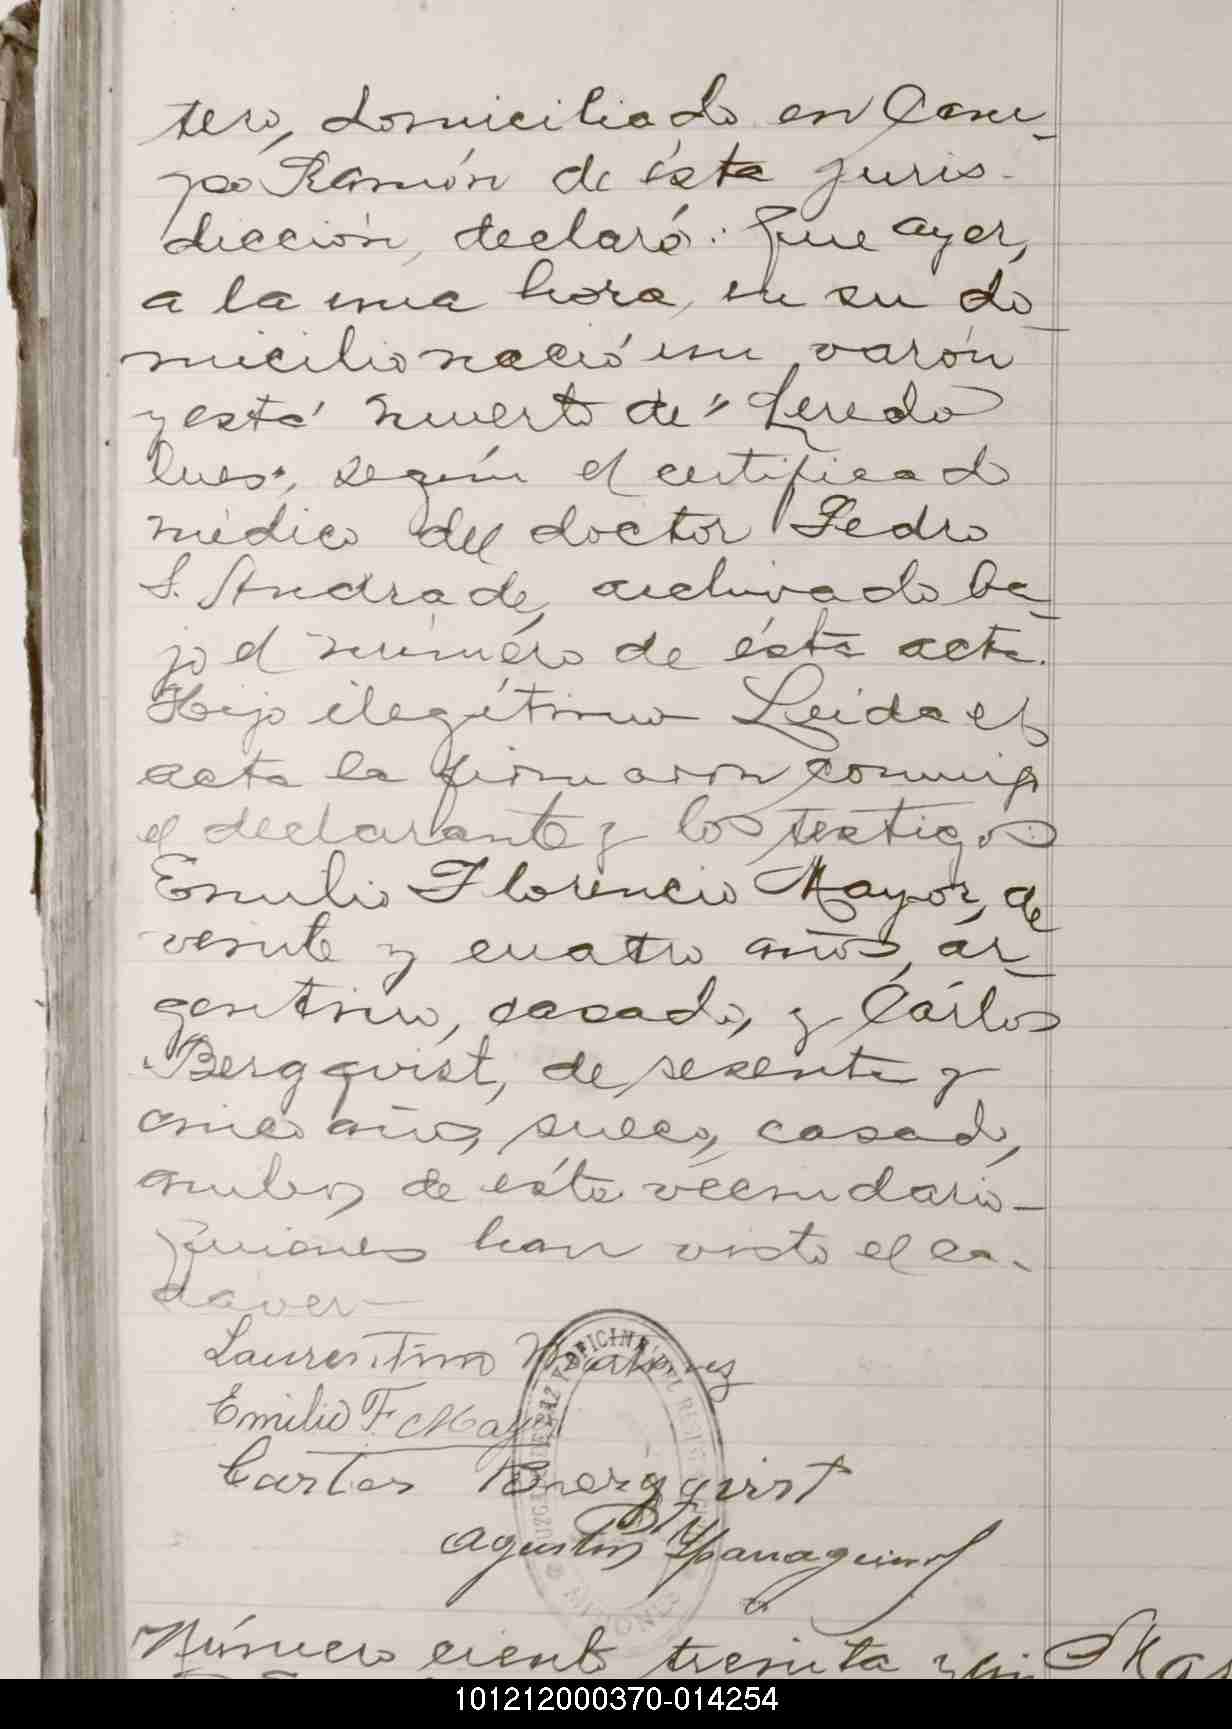 tero, domiciliado en Cam-
po Ramón de ésta juris-
dicción, declaró: Que ayer,
a la una hora, en su do-
micilio nació un varón
y está muerto de "Heredo
lues", según el certificado
médico del doctor Pedro
S. Andrade, archivado ba-
jo el número de ésta acta.
Hijo ilegítimo Leida el
acta la firmaron conmigo
el declarante y los testigos
Emilio Florencio Mayor, de
veinte y cuatro años, ar-
gentino, casado, y Cárlos
Bergqvist, de sesenta y
cinco años, sueco, casado,
ambos de ésta vecindario
quienes han visto el ca-
daver
Laurentino
Emilio F. Mayor
Carlos Bergqvist
Agustin
OFICINA DEL REGISTRO
JUZGADO DE PAZ Y
MISIONES
Número ciento treinta y un
101212000370-014254